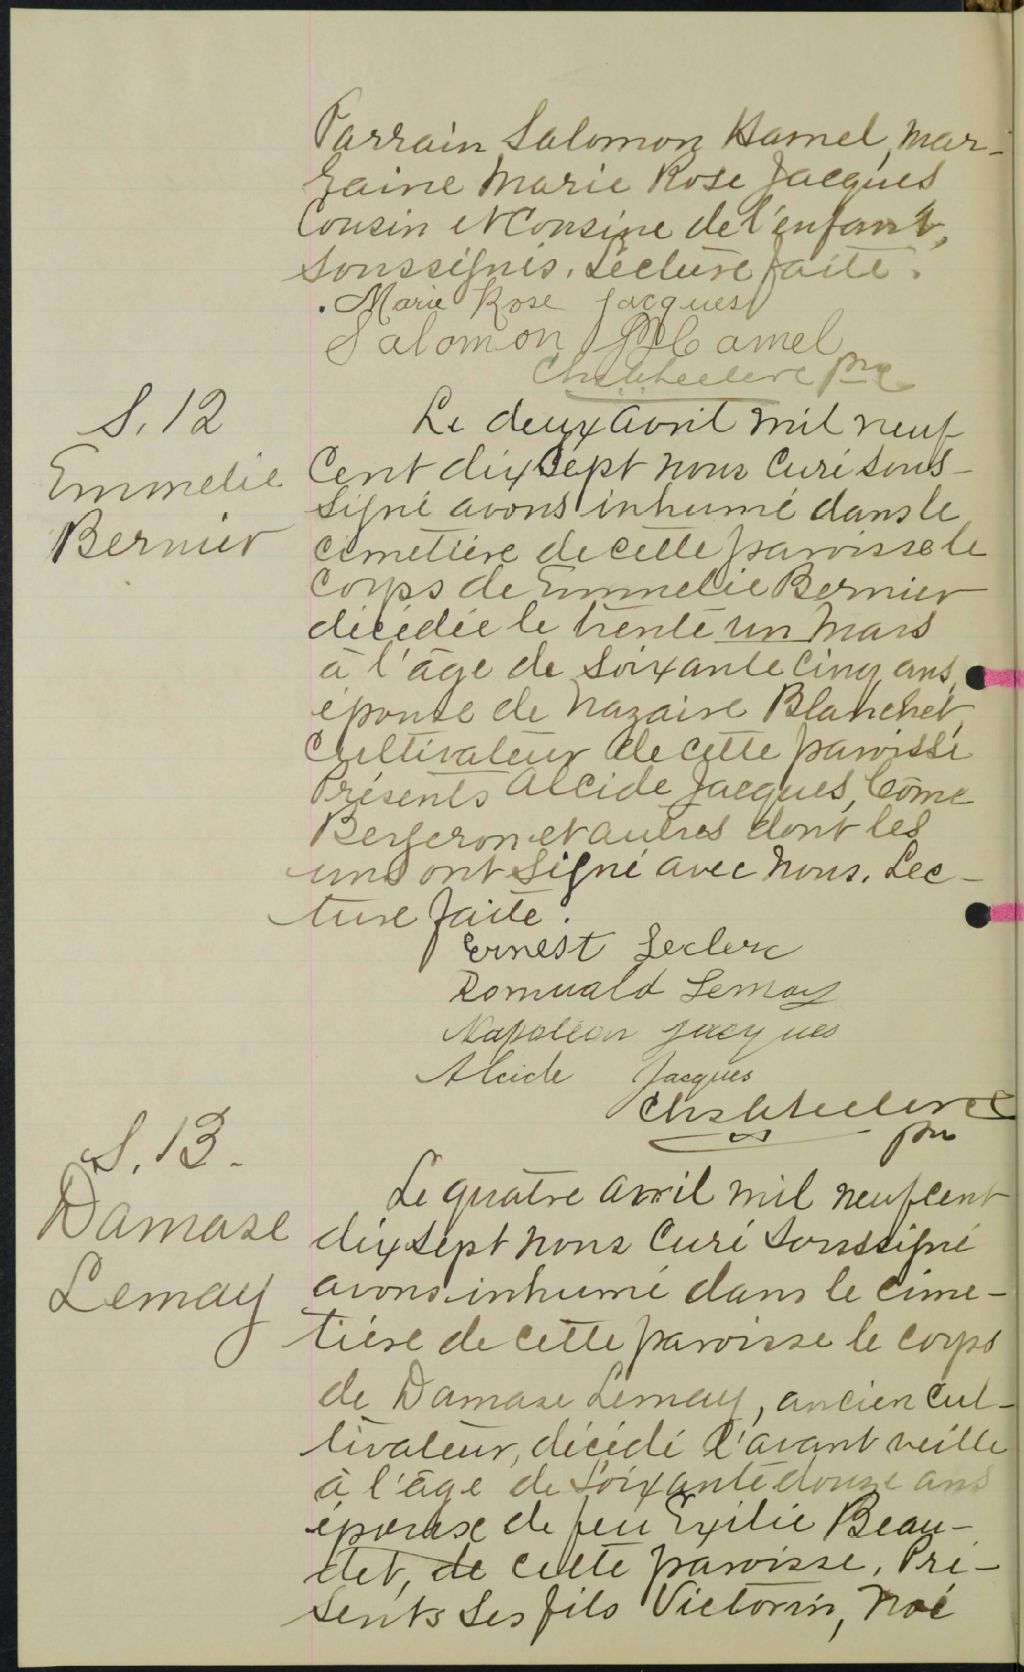 Parrain Salomon Hamel, mar-
raine Marie Rose Jacques
Cousin et Cousine de l'enfant,
soussignés. Lecture faite.
Marie Rose Jacques
Salomon Hamel
ptre
S. 12
Emmelie
Bernier
Le deux avril mil neuf
cent dix sept nous curé sous-
signé avons inhumé dans le
cimetière de cette paroisse le
corps de Emmelie Bernier
décédée le trente un mars
à l'âge de soixante cinq ans,
épouse de Nazaire Blanchet,
cultivateur de cette paroisse
Présents Alcide Jacques, Côme
Bergeron et autres dont les
uns ont signé avec nous. Lec-
ture faite.
Ernest Leclerc
Romuald Lemay
Napoléon Jacques
Alcide Jacques
ptre
S. 13.
Damase
Lemay
Le quatre avril mil neuf cent
dix sept nous curé soussigné
avons inhumé dans le cime-
tière de cette paroisse le corps
de Damase Lemay, ancien cul-
tivateur, décédé l'avant veille
à l'âge de soixante douze ans
époux de feu Exilie Beau-
det, de cette paroisse. Pré-
sents ses fils Victorin, Noé